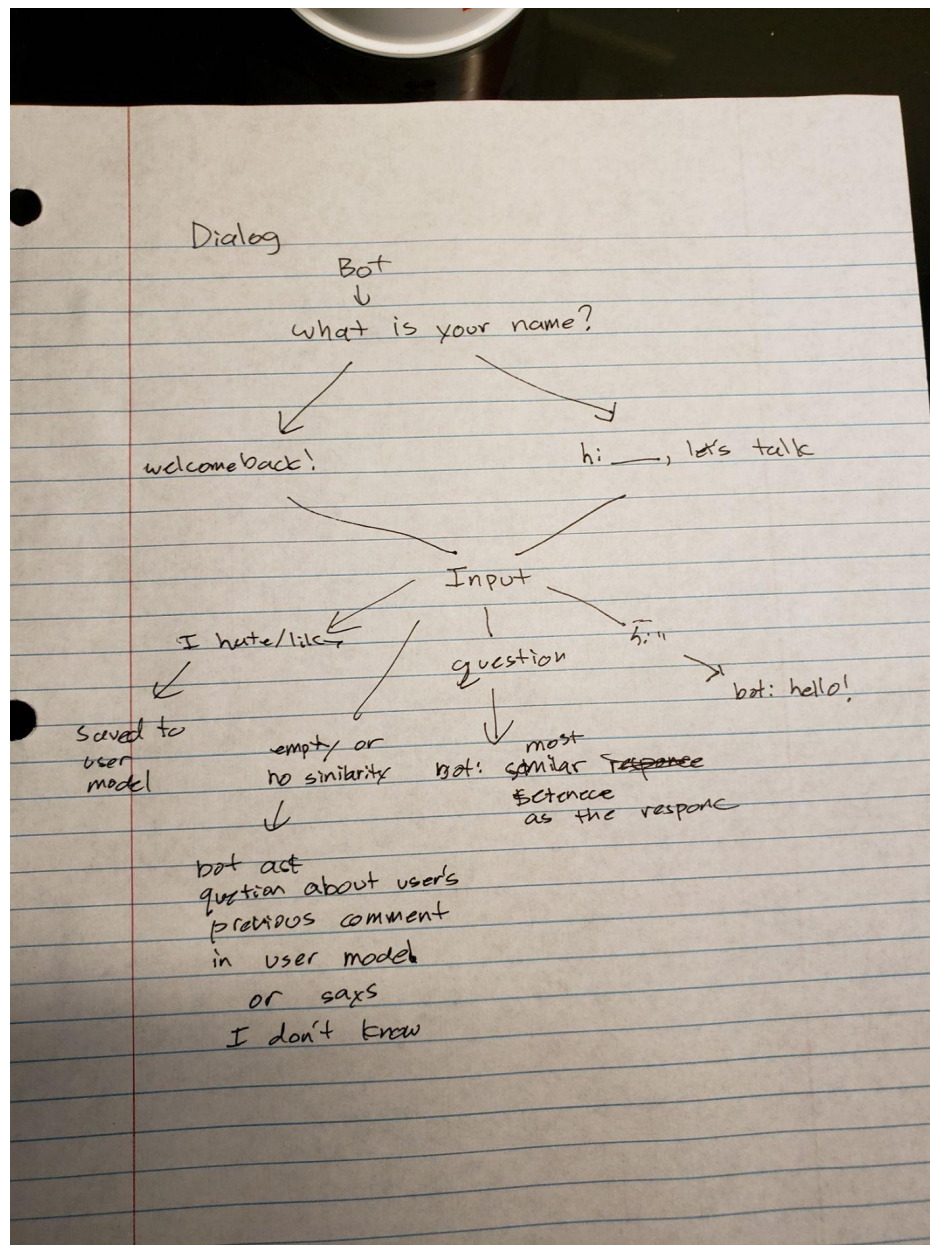 Dialog
Bot
what is your name?
welcome back!
hi ___, let's talk
Input
I hate/like
question
"hi"
bot: hello!
saved to
user
model
empty or
no sinilarity
bot: most similar responce
setenece
as the responc
bot act
qustian about user's
previous comment
in user model
or says
I don't know